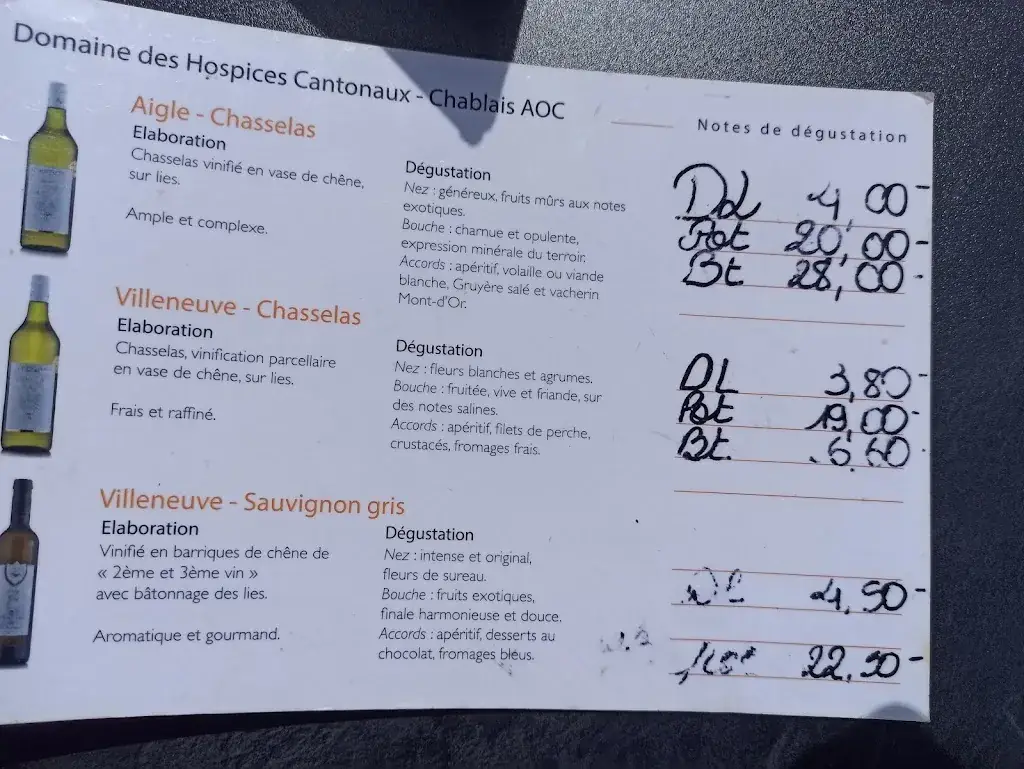 Domaine des Hospices Cantonaux - Chablais AOC
Notes de dégustation
Aigle - Chasselas
Elaboration
Chasselas vinifié en vase de chêne,
sur lies.
Ample et complexe.
Dégustation
Nez : généreux, fruits mûrs aux notes
exotiques.
Bouche : charnue et opulente,
expression minérale du terroir.
Accords : apéritif, volaille ou viande
blanche, Gruyère salé et vacherin
Mont-d'Or.
DL 4,00-
Pot 20,00-
Bt 28,00-
Villeneuve - Chasselas
Elaboration
Chasselas, vinification parcellaire
en vase de chêne, sur lies.
Frais et raffiné.
Dégustation
Nez : fleurs blanches et agrumes.
Bouche : fruitée, vive et friande, sur
des notes salines.
Accords : apéritif, filets de perche,
crustacés, fromages frais.
DL 3,80-
Pot 19,00-
Bt 6.60
Villeneuve - Sauvignon gris
Elaboration
Vinifié en barriques de chêne de
« 2ème et 3ème vin »
avec bâtonnage des lies.
Aromatique et gourmand.
Dégustation
Nez : intense et original,
fleurs de sureau.
Bouche : fruits exotiques,
finale harmonieuse et douce.
Accords : apéritif, desserts au
chocolat, fromages bleus.
DL 4,50-
22,50-